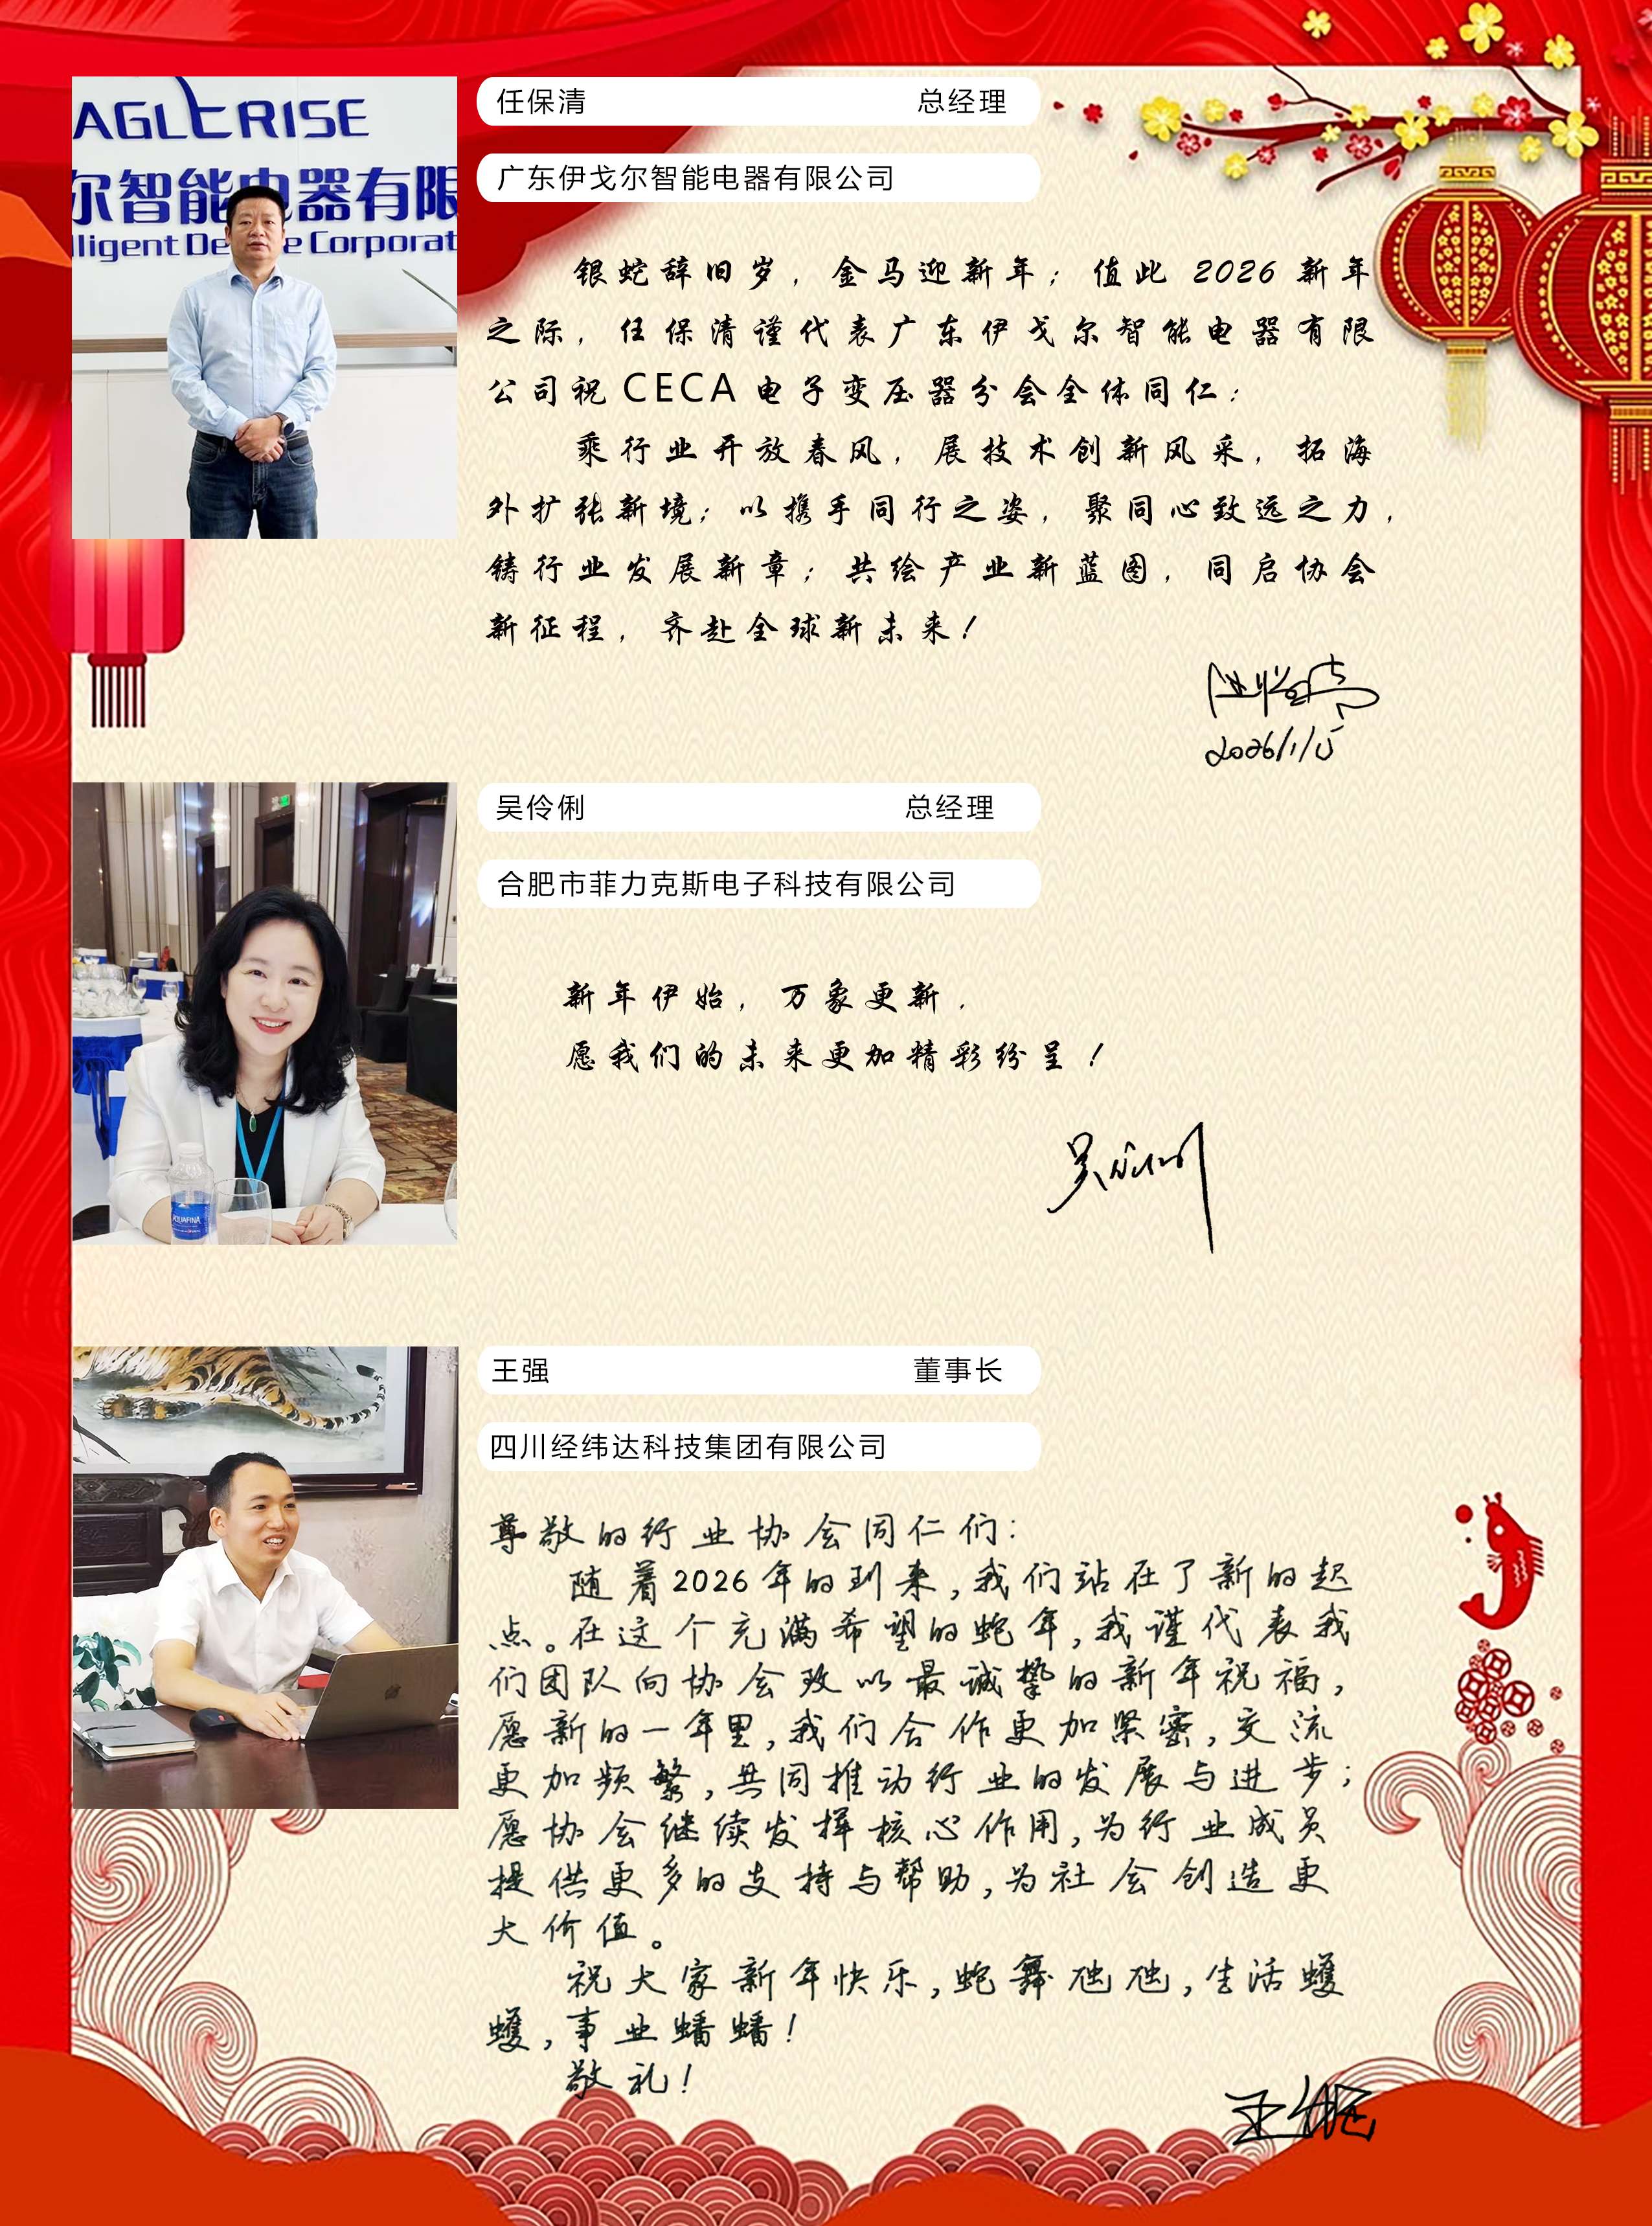 AGLERISE
尔智能电器有限
lligent De e Corporat
任保清 总经理
广东伊戈尔智能电器有限公司
银蛇辞旧岁，金马迎新年；值此 2026 新年
之际，任保清谨代表广东伊戈尔智能电器有限
公司祝 CECA 电子变压器分会全体同仁：
乘行业开放春风，展技术创新风采，拓海
外扩张新境；以携手同行之姿，聚同心致远之力，
铸行业发展新章；共绘产业新蓝图，同启协会
新征程，齐赴全球新未来！
任保清
2026/1/15
吴伶俐 总经理
合肥市菲力克斯电子科技有限公司
新年伊始，万象更新，
愿我们的未来更加精彩纷呈！
吴伶俐
AQUAFINA
王强 董事长
四川经纬达科技集团有限公司
尊敬的行业协会同仁们：
随着2026年的到来，我们站在了新的起
点。在这个充满希望的蛇年，我谨代表我
们团队向协会致以最诚挚的新年祝福，
愿新的一年里，我们合作更加紧密，交流
更加频繁，共同推动行业的发展与进步；
愿协会继续发挥核心作用，为行业成员
提供更多的支持与帮助，为社会创造更
大价值。
祝大家新年快乐，蛇舞虺虺，生活蠖
蠖，事业蟠蟠！
敬礼！
王强